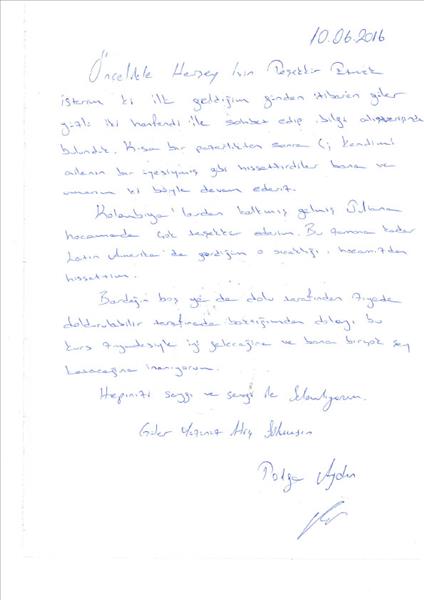 10.06.2016
Öncelikle Herşey İçin Teşekkür Etmek
isterim ki ilk geldiğim günden itibaren güler
yüzlü iki hanfendi ile sohbet edip bilgi alışverişinde
bulunduk. Kısa bir pazarlıktan sonra (; kendimi
ailenin bir üyesiymiş gibi hissettirdiler bana ve
umarım ki böyle devam ederiz.
Kolombiya'lardan kalkmış gelmiş
hocamada çok teşekkür ederim. Bu zamana kadar
Latin Amerika'da gördüğüm o sıcaklığı, hocamızdan
hissettim.
Bardağın boş ya da dolu tarafından ziyade
doldurulabilir tarafınada baktığımdan dolayı bu
kurs ziyadesiyle iyi geleceğine ve bana birçok şey
katacağına inanıyorum.
Hepinizi saygı ve sevgi ile Selamlıyorum.
Güler Yüzünüz Hiç Solmasın
Tolga Aydın